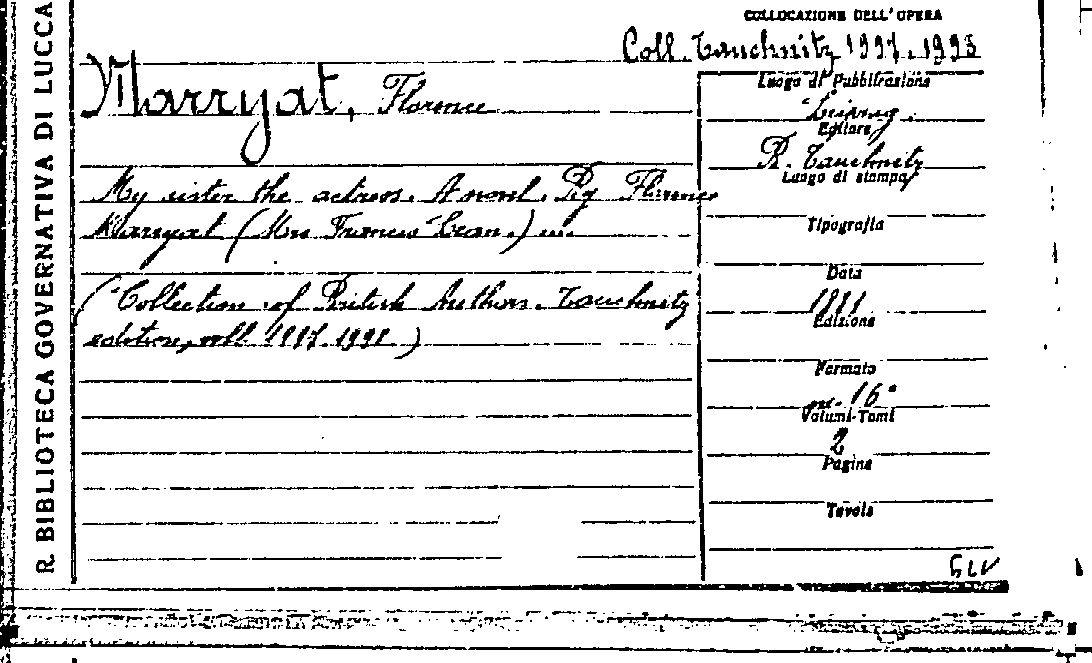 R. BIBLIOTECA GOVERNATIVA DI LUCCA
COLLOCAZIONE DELL'OPERA
Coll. Tauchnitz 1997-1998
Marryat, Florence
My sister the actress. A novel. By Florence
Marryat (Mrs Francis Lean.) in.
(Collection of British Authors. Tauchnitz
edition, voll. 1997-1998)
Luogo di Pubblicazione
Leipzig.
Editore
B. Tauchnitz
Luogo di stampa
Tipografia
Data
1881
Edizione
Formato
in-16°
Volumi-Tomi
2
Pagine
Tavole